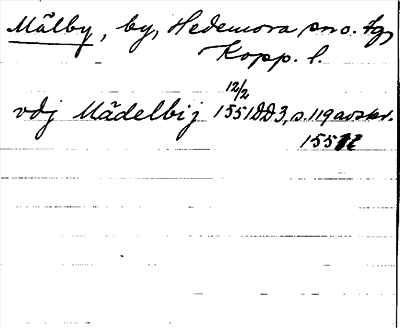 Mälby, by, Hedemora sno. fg,
Kopp. l.
12/2
vdj Mädelbij 1551 DD3, s. 119 avskr.
155